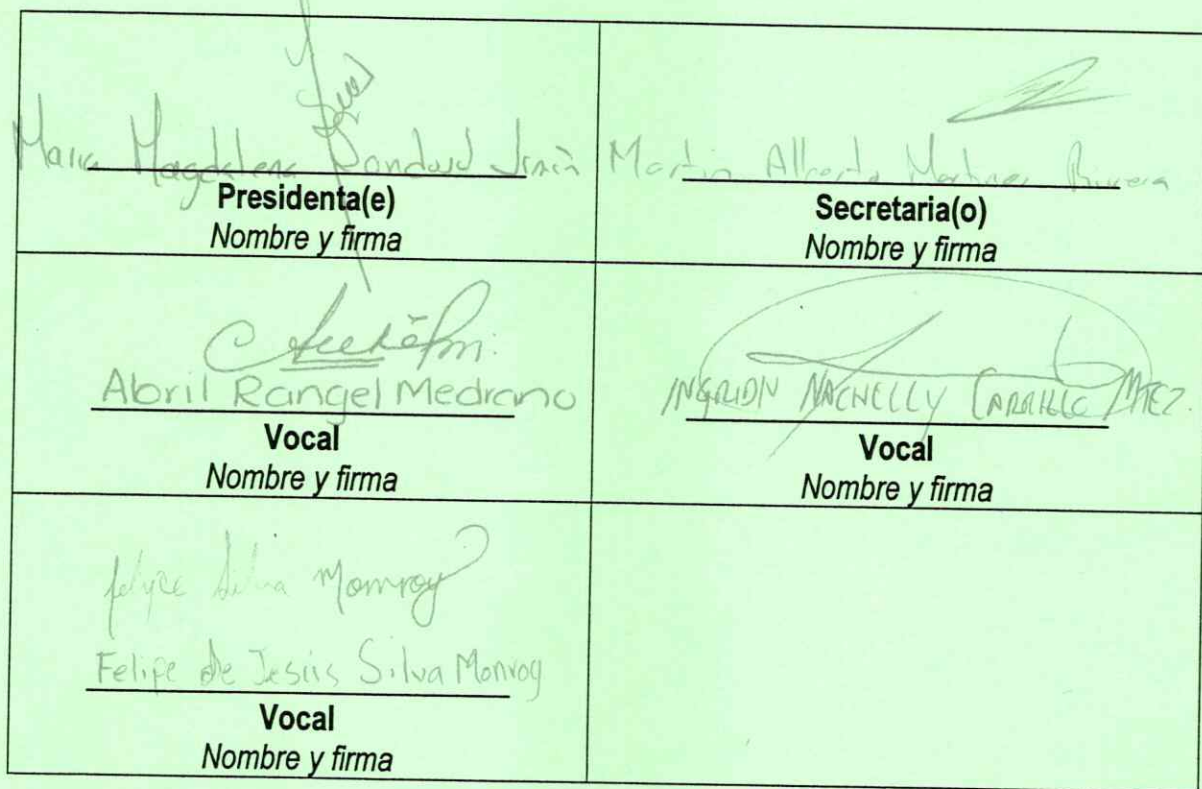 Maria Magdalena Sandoval
Presidenta(e)
Nombre y firma
Martin Alberto Martinez Rivera
Secretaria(o)
Nombre y firma
Abril Rangel Medrano
Vocal
Nombre y firma
NACHELLY CARRILLO
Vocal
Nombre y firma
Felipe Silva Monroy
Felipe de Jesús Silva Monroy
Vocal
Nombre y firma